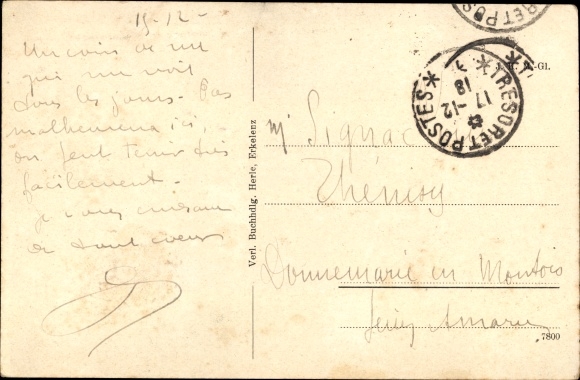 15-12-
Un coin de rue
qui me voit
tous les jours. Pas
malheureux ici,
on peut tenir très
facilement.
Je vous embrasse
de tout coeur
Verl. Buchhdlg. Herle, Erkelenz
*TRESOR ET POSTES*
17-12
18
ET POS
-Gl.
Mr Signac
Thénisy
Donnemarie en Montois
Seine
7800